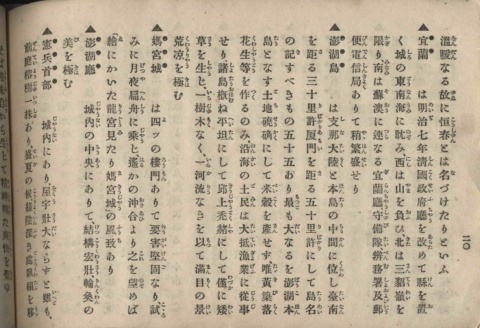 二〇
溫暖なる故に恒春とは名づけたりといふ
▲宜蘭 は明治七年清國政府廳を改めて縣を置
く城の東南海に臨み西は山を負ひ北は三貂嶺を
限り南は蘇澳に連なる宜蘭廳守備隊辨務署及郵
便電信局ありて稍繁盛せり
▲澎湖島 は支那大陸と本島の中間に位し臺南
を距る三十里許厦門を距る五十里許にして島名
の記すべきもの五十五あり最も大なるを澎湖本
島となす土地磽确にして米穀を產せず唯黃粱落
花生等を作るのみ、沿海の土民は大抵漁業に從事
せり諸島槪ね平坦にして邱上禿赭にして僅に矮
草を生じ、一樹木なく、一河流なきを以て滿目の景
荒凉を極む
▲媽宮城 は四ッの樓門ありて要害堅固なり試
みに月夜扁舟に乘じ遙かの沖合より之を望めば
「繪にかいた龍宮見たり媽宮城の風致あり
▲澎湖廳 城內の中央にありて、結構宏壯輪奐の
美を極む
▲憲兵首部 城內にあり、屋宇壯大ならずと雖も、